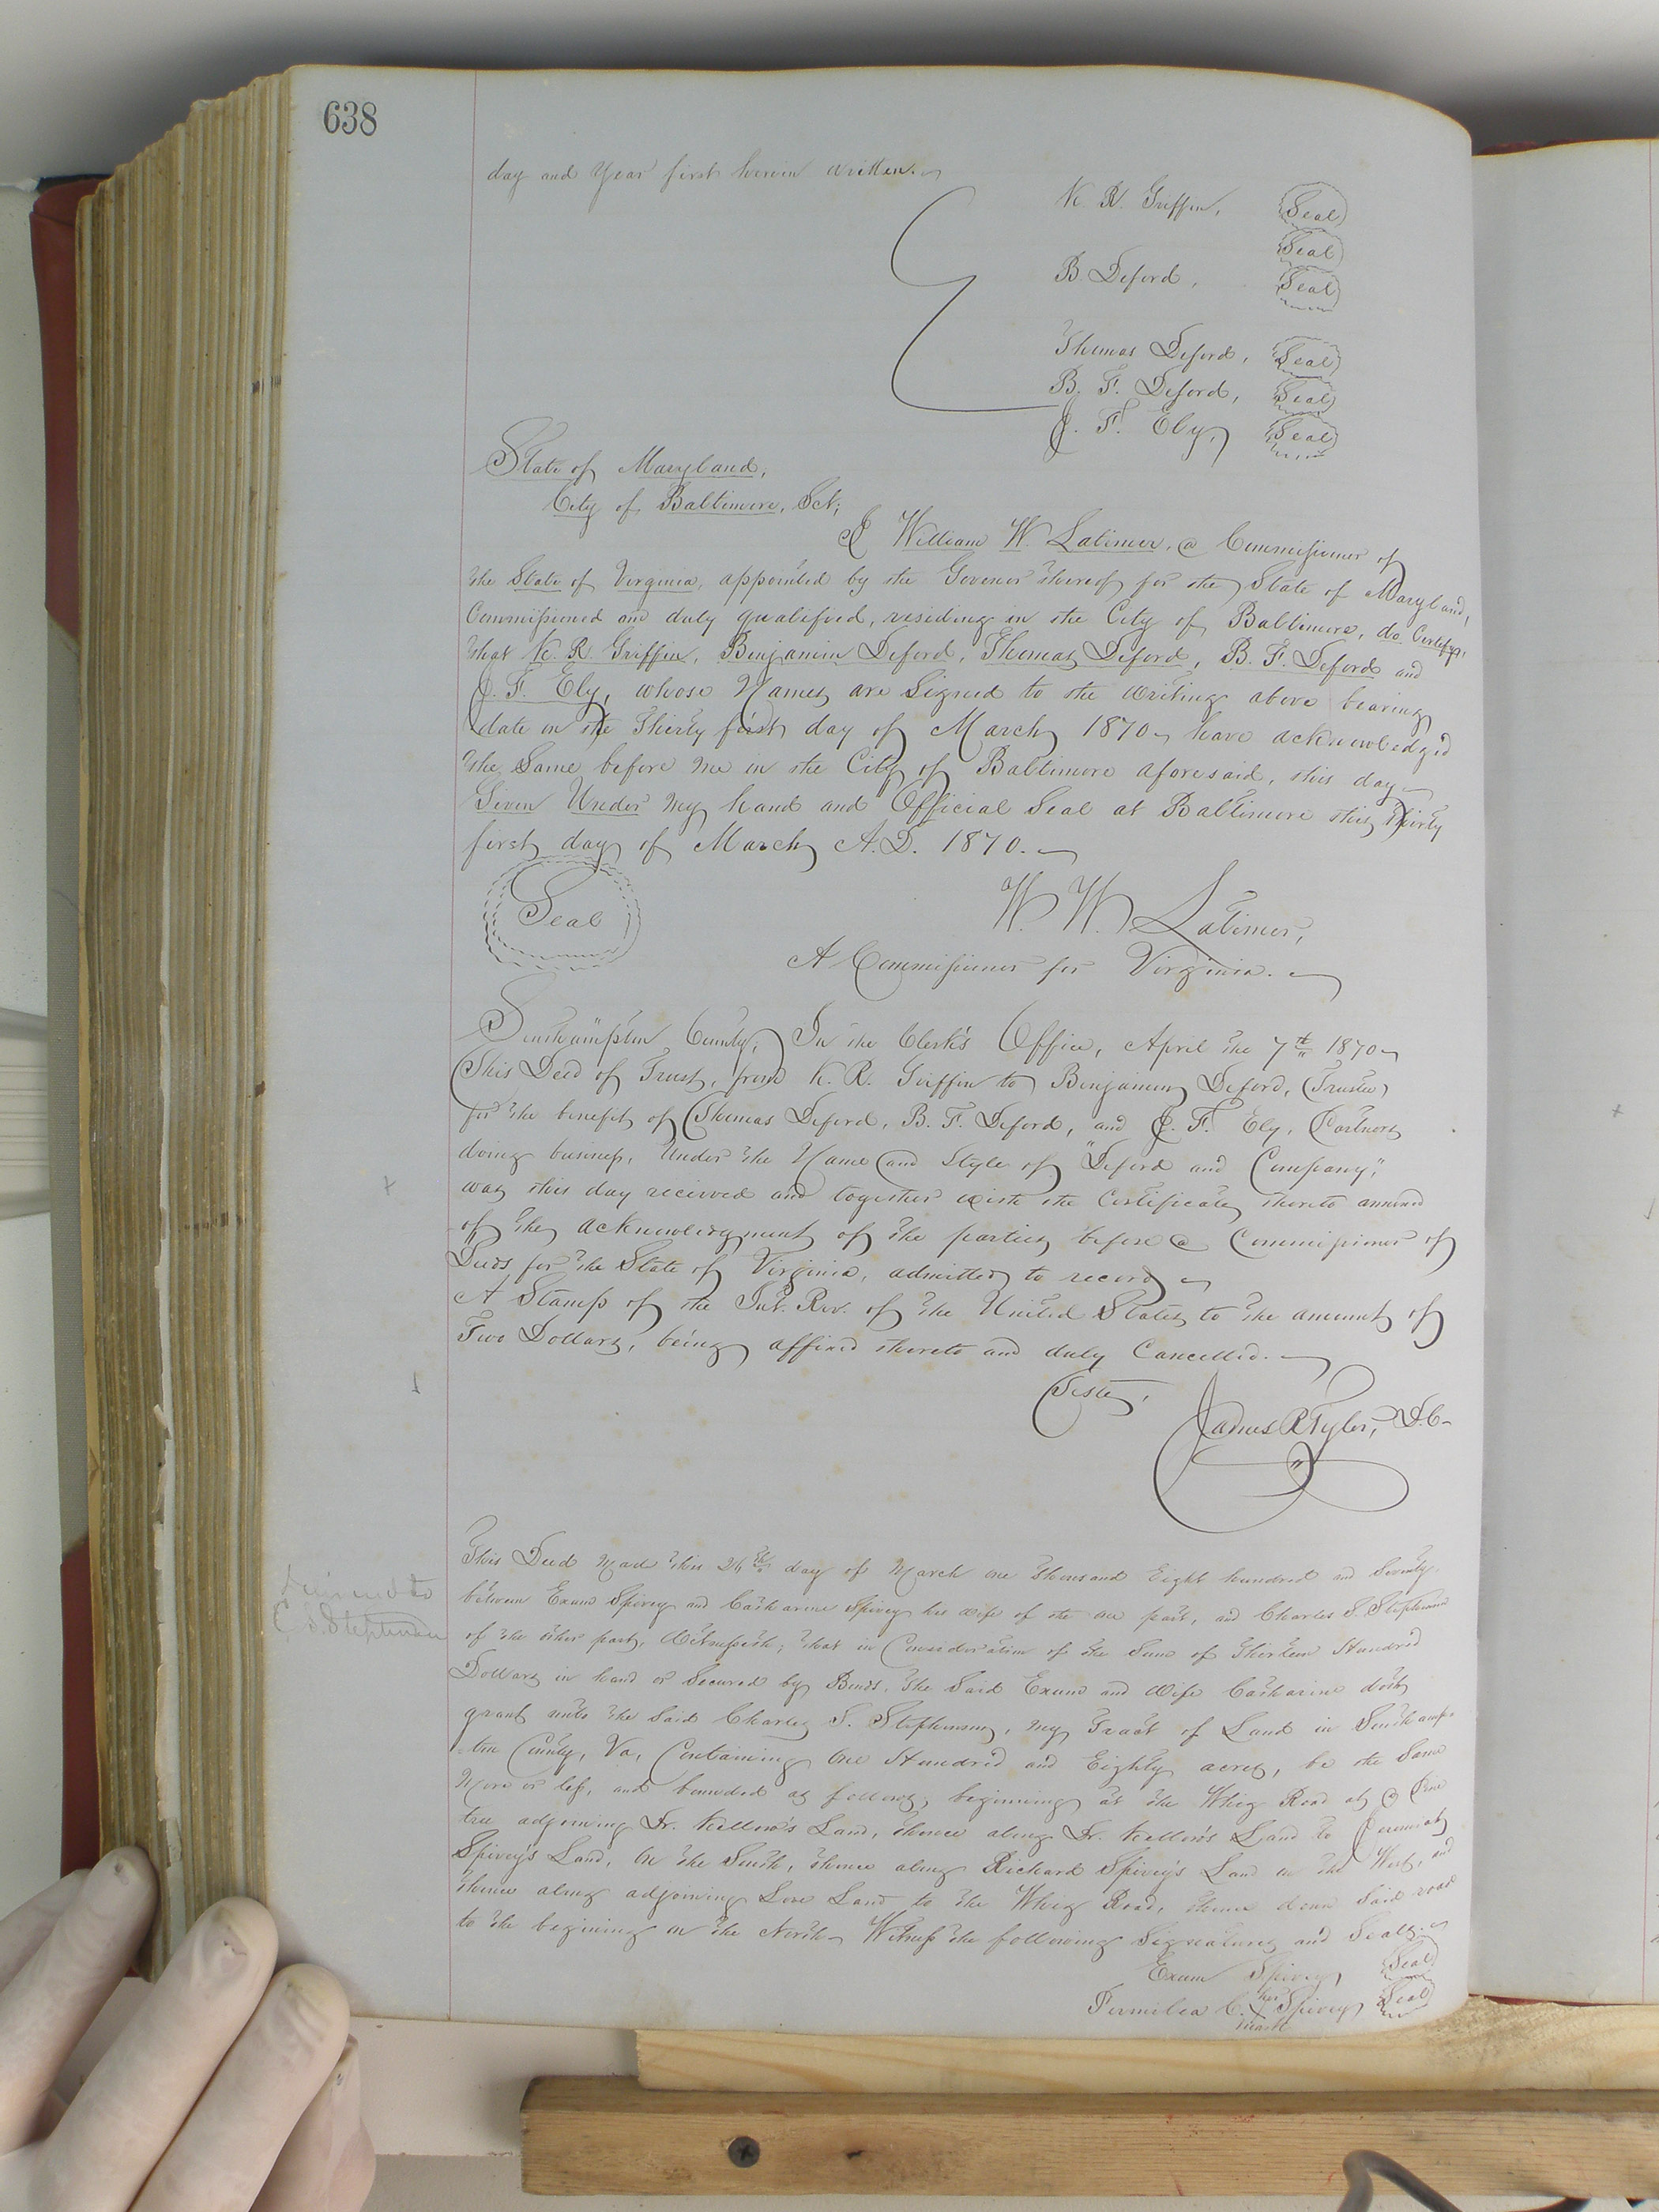 638
day and Year first herein written.
K. R. Griffin, Seal
Seal
B. Deford, Seal
Thomas Deford, Seal
B. F. Deford, Seal
J. F. Ely, Seal
State of Maryland,
City of Baltimore, Sct;
I William W. Latimer, a Commissioner of
the State of Virginia, appointed by the Govenor thereof for the State of Maryland,
Commissioned and duly qualified, residing in the City of Baltimore, do Certify,
that K. R. Griffin, Benjamin Deford, Thomas Deford, B. F. Deford and
J. F. Ely, whose Names are Signed to the writing above bearing
date on the Thirty first day of March 1870 have acknowledged
the Same before me in the City of Baltimore aforesaid, this day
Given Under my hand and Official Seal at Baltimore this Thirty
first day of March A.D. 1870.
Seal
W. W. Latimer,
A Commissioner for Virginia.
Southampton County, In the Clerk's Office, April the 7th 1870
This Deed of Trust, from K. R. Griffin to Benjamin Deford, (Trustee)
for the benefit of Thomas Deford, B. F. Deford, and J. F. Ely, Partners
doing business, Under the Name and Style of "Deford and Company,"
was this day received and together with the Certificate thereto annexed
of the acknowledgment of the parties before a Commissioner of
Deeds for the State of Virginia, admitted to record
A Stamp of the Int. Rev. of the United States to the amount of
Two Dollars, being affixed thereto and duly Cancelled.
Teste,
James R Tyler, D.C.
This Deed Made this 26th day of March one thousand Eight hundred and Seventy.
between Exum Spivey and Catharine Spivey his wife of the one part, and Charles S. Stephenson
Delivered to
C. S. Stephenson
of the other part, Witnesseth; that in Consideration of the Sum of Thirteen Hundred
Dollars in hand or Secured by Bonds, the Said Exum and Wife Catharine doth
grant unto the Said Charles S. Stephenson, my Tract of Land in Southamp-
ton County, Va, Containing One Hundred and Eighty acres, be the Same
More or less, and bounded as follows, beginning at the Whig Road at a Pine
tree adjoining Dr. Kellow's Land, thence along Dr. Kellow's Land to Jeremiah
Spivey's Land, On the South, thence along Richard Spivey's Land on the West, and
thence along adjoining Love Land to the Whig Road, thence down Said road
to the begining on the North Witness the following Signatures and Seals.
Exum Spivey Seal
Permilea C. her X mark Spivey Seal